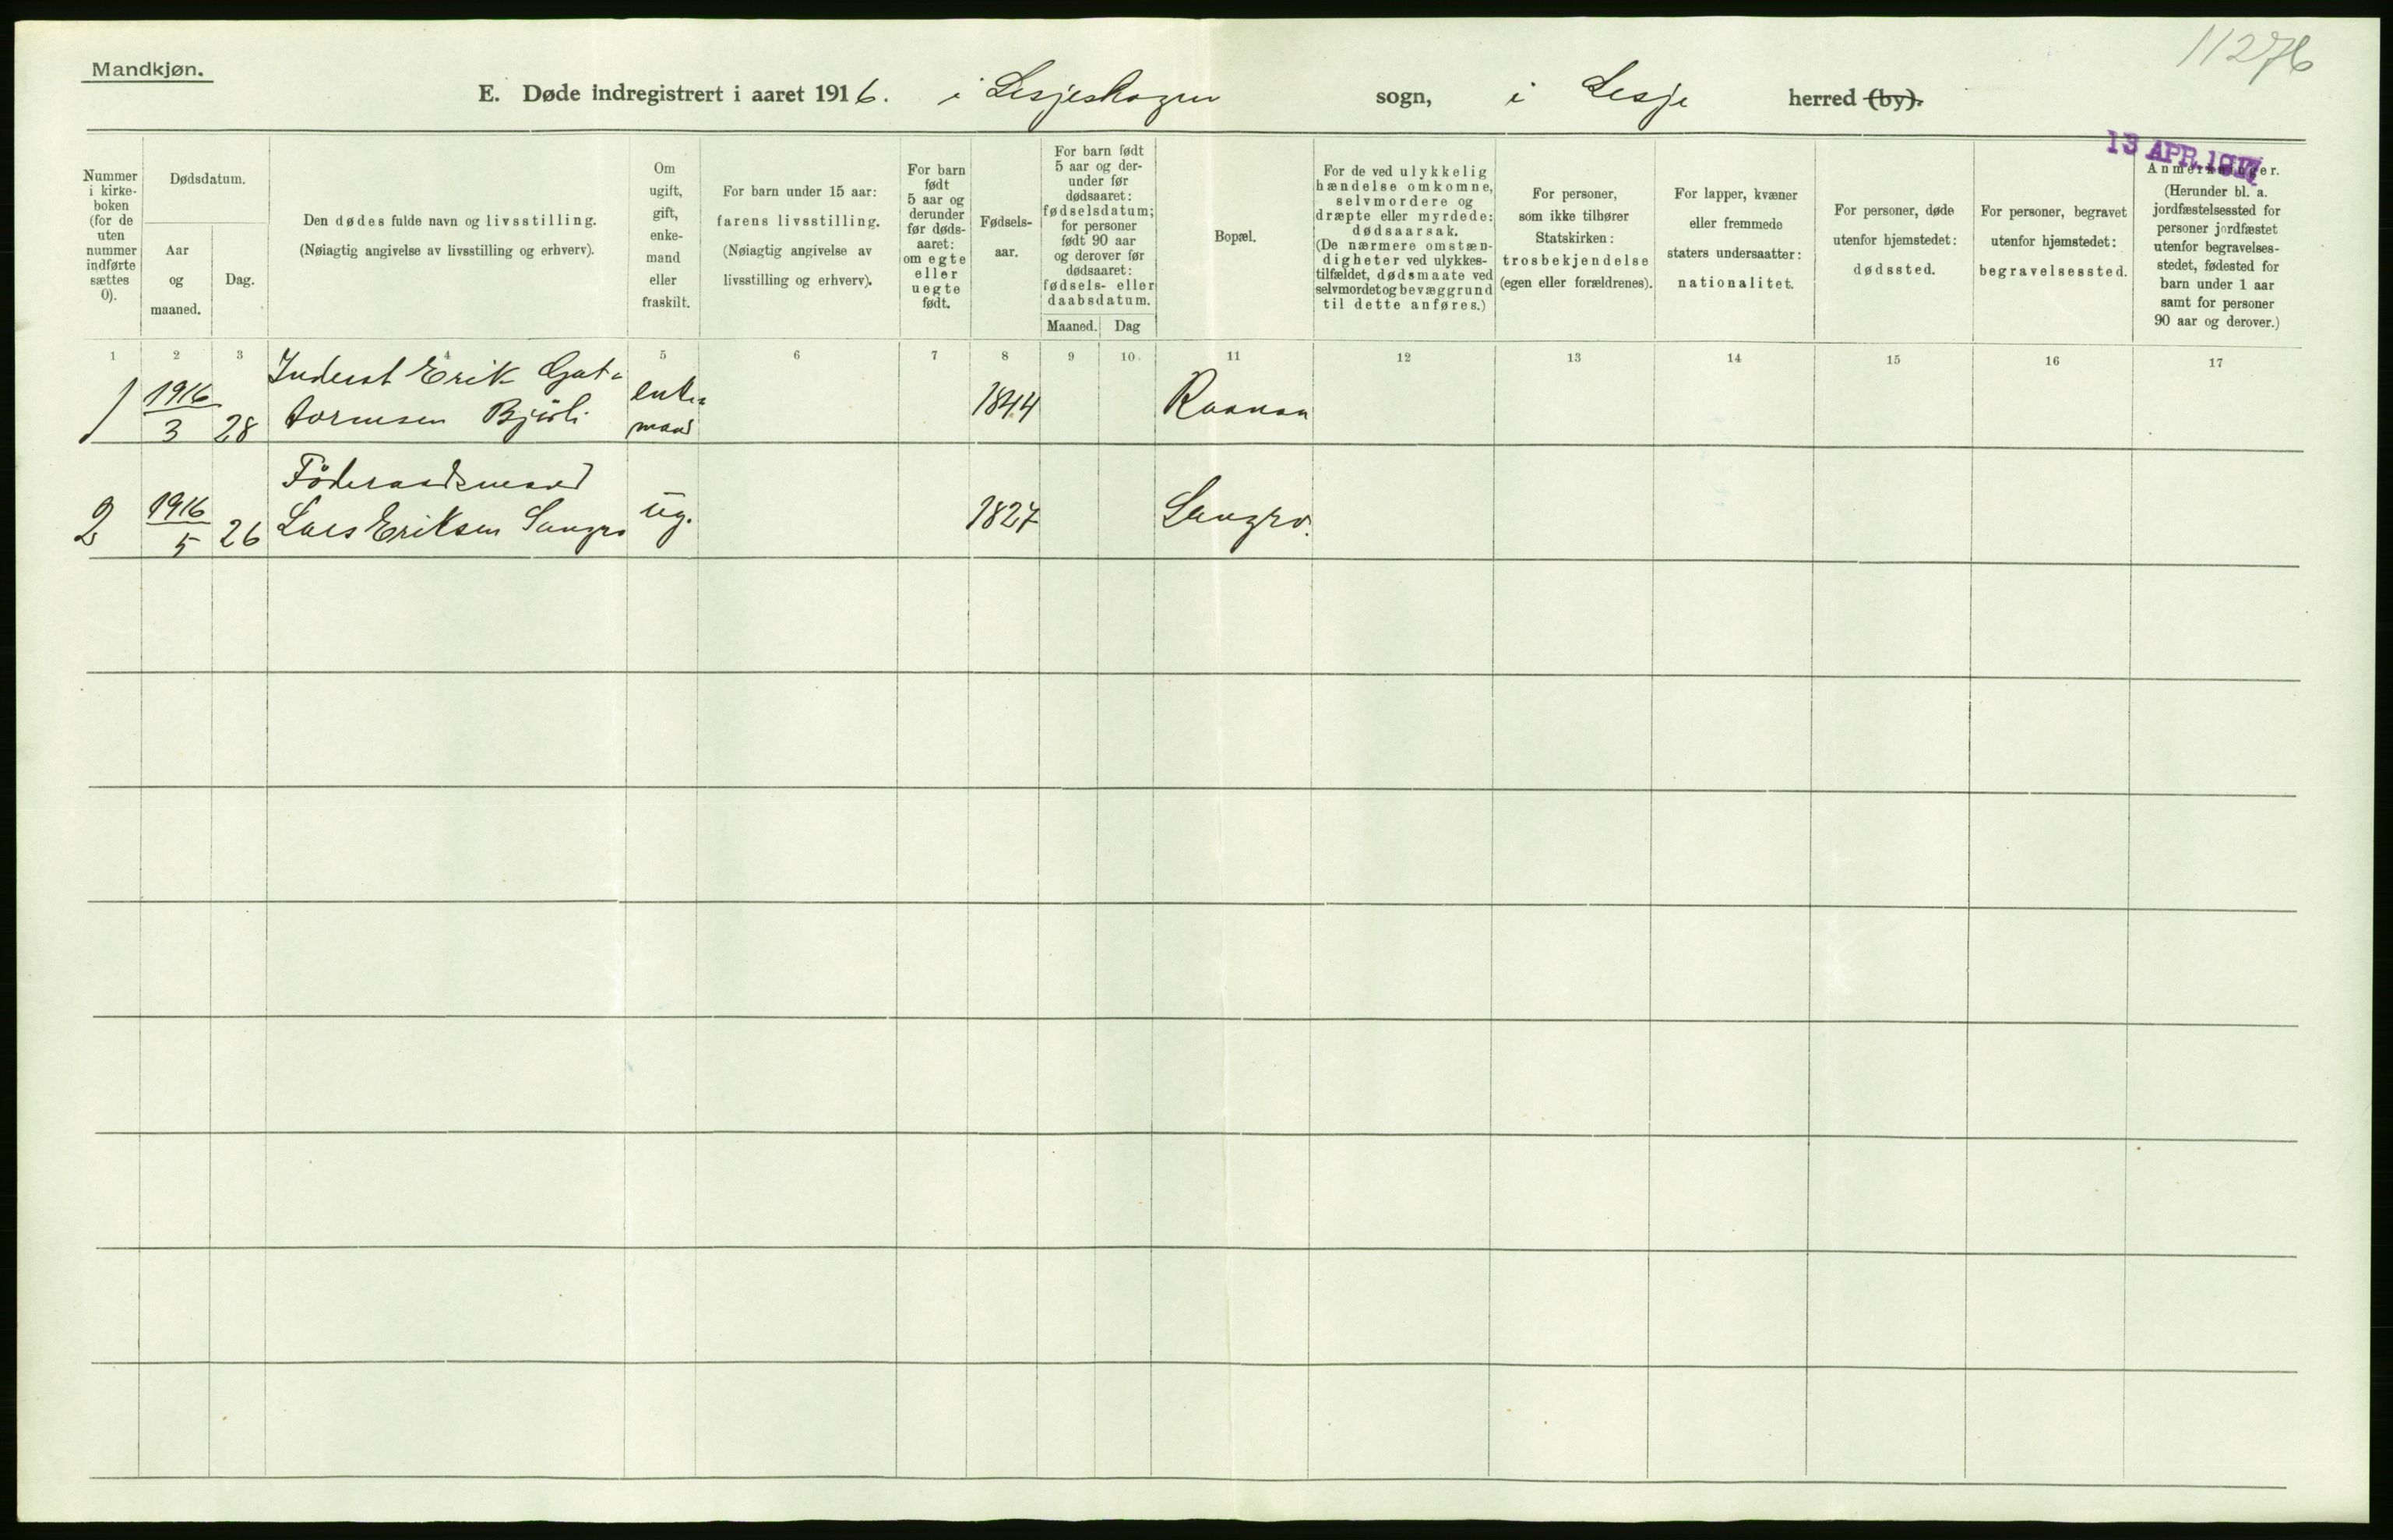 11276
Mandkjøn.
E. Døde indregistrert i aaret 1916. i Lesjeskogen sogn, i Lesje herred (by).
13 APR. 1917
Nummer
i kirke-
boken
(for de
uten
nummer
indførte
sættes
0).
Dødsdatum.
Aar
og
maaned.
Dag.
Den dødes fulde navn og livsstilling.
(Nøiagtig angivelse av livsstilling og erhverv).
Om
ugift,
gift,
enke-
mand
eller
fraskilt.
For barn under 15 aar:
farens livsstilling.
(Nøiagtig angivelse av
livsstilling og erhverv).
For barn
født
5 aar og
derunder
før døds-
aaret:
om egte
eller
uegte
født.
Fødsels-
aar.
For barn født
5 aar og der-
under før
dødsaaret:
fødselsdatum;
for personer
født 90 aar
og derover før
dødsaaret:
fødsels- eller
daabsdatum.
Maaned. Dag
Bopæl.
For de ved ulykkelig
hændelse omkomne,
selvmordere og
dræpte eller myrdede:
dødsaarsak.
(De nærmere omstæn-
digheter ved ulykkes-
tilfældet, dødsmaate ved
selvmordet og bevæggrund
til dette anføres.)
For personer,
som ikke tilhører
Statskirken:
trosbekjendelse
(egen eller forældrenes).
For lapper, kvæner
eller fremmede
staters undersaatter:
nationalitet.
For personer, døde
utenfor hjemstedet:
dødssted.
For personer, begravet
utenfor hjemstedet:
begravelsessted.
Anmerkninger.
(Herunder bl. a.
jordfæstelsessted for
personer jordfæstet
utenfor begravelses-
stedet, fødested for
barn under 1 aar
samt for personer
90 aar og derover.)
1 2 3 4 5 6 7 8 9 10 11 12 13 14 15 16 17
Inderst Erik Gut-
1 1916 3 28 tormsen Bjorli enke- mand 1844 Raanaa
Föderaadsmand
2 1916 5 26 Lars Eriksen ug. 1827